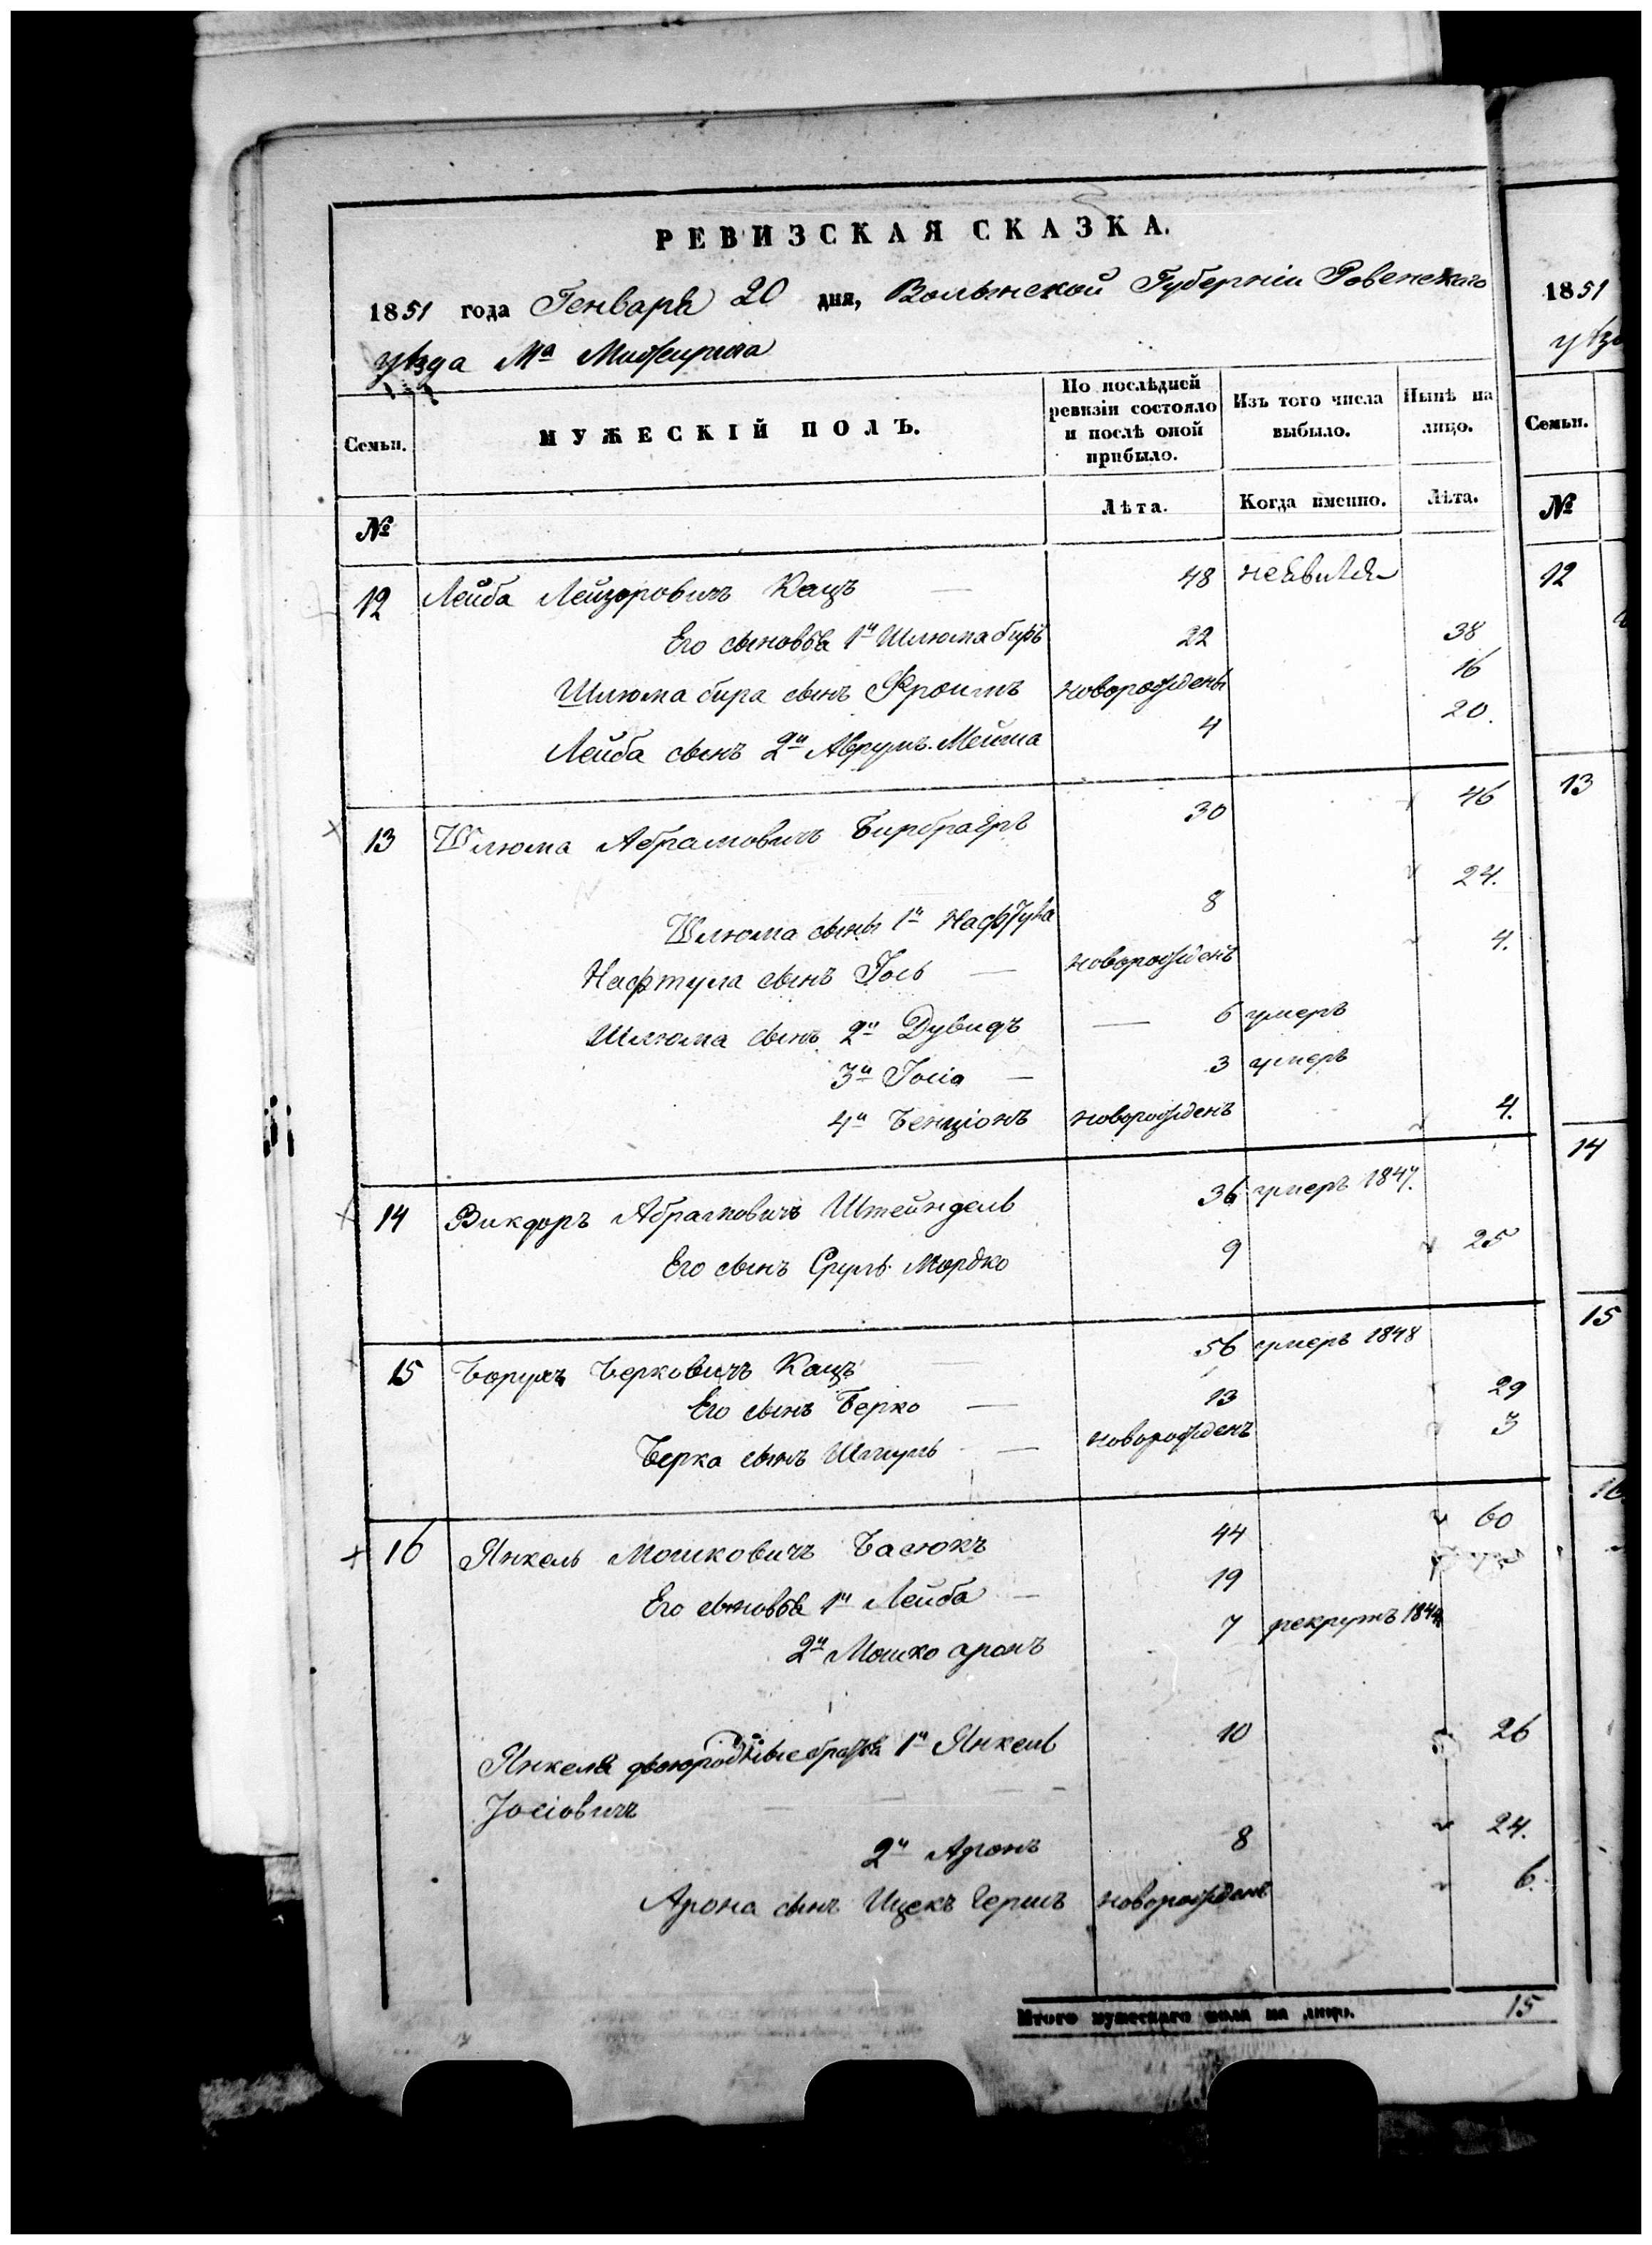 РЕВИЗСКАЯ СКАЗКА.
1851 года Генваря 20 дня, Волынской Губерніи Ровенскаго
уѣзда Мª Межирича
Семьи. МУЖЕСКІЙ ПОЛЪ. По послѣдней ревизіи состояло и послѣ оной прибыло. Изъ того числа выбыло. Нынѣ на лицо.
№ Лѣта. Когда именно. Лѣта.
12 Лейба Лейзоровичъ Кацъ — 48 неявился
Его сыновья 1й Шлюма биръ 22 38
Шлюма бира сынъ Фроимъ новорожденъ 16
Лейба сынъ 2й Аврумъ-Мейша 4 20.
13 Шлюма Абрамовичъ Бирбраеръ 30 46
Шлюма сыны 1й Нафтула 8 24.
Нафтула сынъ Іось — новорожденъ 4.
Шлюма сынъ 2й Дувидъ — 6 умеръ
3й Іосіо — 3 умеръ
4й Бенціонъ новорожденъ 4.
14 Викдоръ Абрамовичъ Штейндель 36 умеръ 1847.
Его сынъ Сруль-Мордко 9 25
15 Борухъ Берковичъ Кацъ — 56 умеръ 1848
Его сынъ Берко — 13 29
Берка сынъ Шмуль — новорожденъ 3
16 Янкель Мошковичъ Басюкъ 44 60
Его сыновья 1й Лейба — 19
2й Мошко аронъ 7 рекрутъ 1844
Янкеля двоюродные братья 1й Янкель 10 26
Іосіовичъ — — —
2й Аронъ 8 24.
Арона сынъ Ицекъ Гершъ новорожденъ 6.
Итого мужескаго пола на лицо. 15
1851
уѣзд
Семьи.
№
12
13
14
15
16